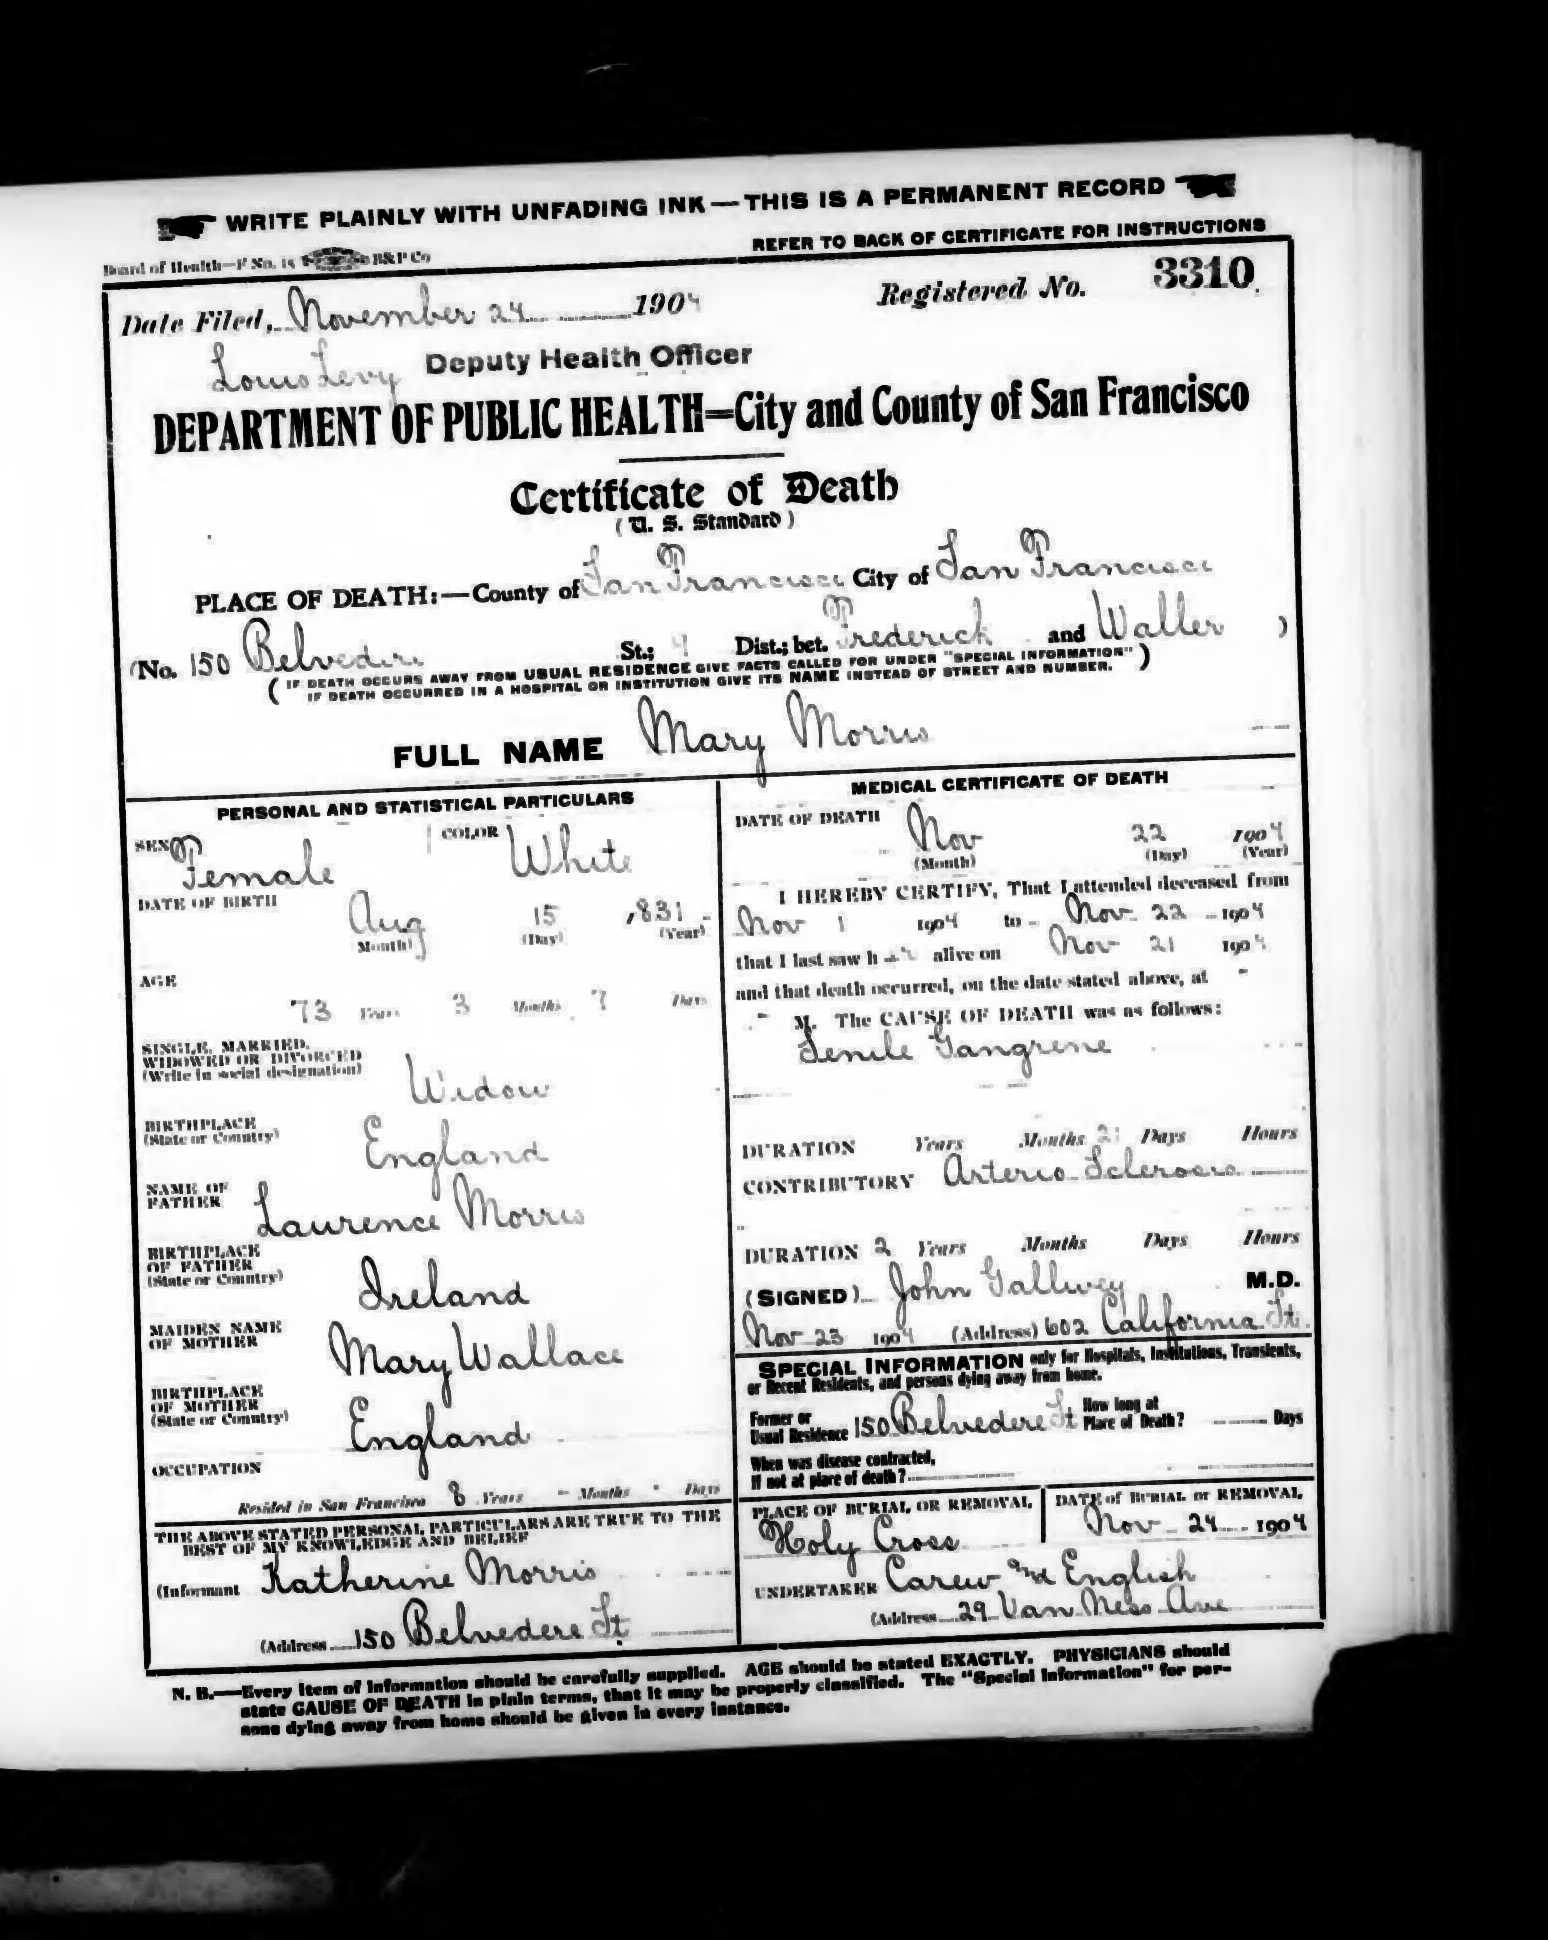 WRITE PLAINLY WITH UNFADING INK—THIS IS A PERMANENT RECORD
REFER TO BACK OF CERTIFICATE FOR INSTRUCTIONS
Board of Health—F No. 15 B&P Co
Date Filed, November 24 1904
Registered No. 3310
Louis Levy Deputy Health Officer
DEPARTMENT OF PUBLIC HEALTH=City and County of San Francisco
Certificate of Death
(U. S. Standard)
PLACE OF DEATH:—County of San Francisco City of San Francisco
(No. 150 Belvedere St.; 4 Dist.; bet. Frederick and Waller )
( IF DEATH OCCURS AWAY FROM USUAL RESIDENCE GIVE FACTS CALLED FOR UNDER "SPECIAL INFORMATION" )
IF DEATH OCCURRED IN A HOSPITAL OR INSTITUTION GIVE ITS NAME INSTEAD OF STREET AND NUMBER.
FULL NAME Mary Morris
PERSONAL AND STATISTICAL PARTICULARS
SEX Female COLOR White
DATE OF BIRTH
Aug 15 1831
(Month) (Day) (Year)
AGE
73 Years 3 Months 7 Days
SINGLE, MARRIED,
WIDOWED OR DIVORCED
(Write in social designation)
Widow
BIRTHPLACE
(State or Country)
England
NAME OF
FATHER
Laurence Morris
BIRTHPLACE
OF FATHER
(State or Country)
Ireland
MAIDEN NAME
OF MOTHER
Mary Wallace
BIRTHPLACE
OF MOTHER
(State or Country)
England
OCCUPATION
Resided in San Francisco 8 Years - Months - Days
THE ABOVE STATED PERSONAL PARTICULARS ARE TRUE TO THE
BEST OF MY KNOWLEDGE AND BELIEF
(Informant Katherine Morris
(Address 150 Belvedere St
MEDICAL CERTIFICATE OF DEATH
DATE OF DEATH
Nov 22 1904
(Month) (Day) (Year)
I HEREBY CERTIFY, That I attended deceased from
Nov 1 1904 to Nov 22 1904
that I last saw h er alive on Nov 21 1904
and that death occurred, on the date stated above, at -
- M. The CAUSE OF DEATH was as follows:
Senile Gangrene
DURATION Years Months 21 Days Hours
CONTRIBUTORY Arterio Sclerosis
DURATION 2 Years Months Days Hours
(SIGNED) John Gallwey M.D.
Nov 23 1904 (Address) 602 California St.
SPECIAL INFORMATION only for Hospitals, Institutions, Transients,
or Recent Residents, and persons dying away from home.
Former or
Usual Residence 150 Belvedere St
How long at
Place of Death? Days
When was disease contracted,
If not at place of death?
PLACE OF BURIAL OR REMOVAL
Holy Cross
DATE of BURIAL or REMOVAL
Nov 24 1904
UNDERTAKER Carew and English
(Address 29 Van Ness Ave
N. B.—Every item of information should be carefully supplied. AGE should be stated EXACTLY. PHYSICIANS should
state CAUSE OF DEATH in plain terms, that it may be properly classified. The "Special Information" for per-
sons dying away from home should be given in every instance.